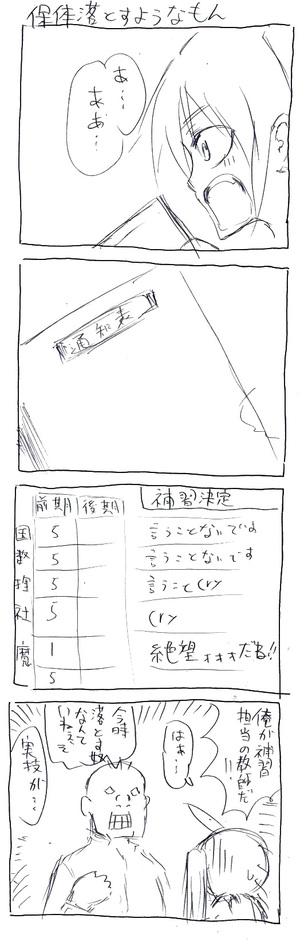 保体落とすようなもん
あ…
ああ…
通知表
前期 後期 補習決定
国 5 言うことないです
数 5 言うことないです
理 5 言うこと(ry
社 5 (ry
魔 1 絶望ォォォだね!!
5
俺が補習
担当の教師だ!!
はぁ…
今時
落とす奴
なんて
いねぇぞ
実技が…